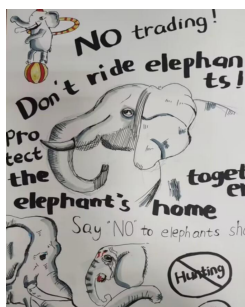 NO trading!
Don't ride elephan
ts!
Pro
tect
the
toget
elephant's home
Say "NO" to elephants sh
Hunting